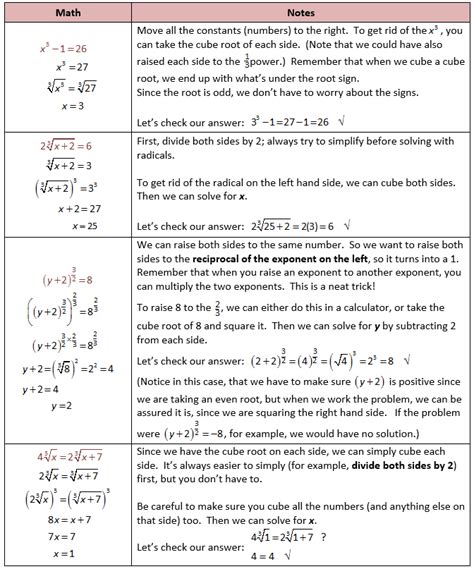 Math
Notes
x³ −1=26
x³ =27
∛x³ = ∛27
x = 3
Move all the constants (numbers) to the right. To get rid of the x³ , you
can take the cube root of each side. (Note that we could have also
raised each side to the 1/3 power.) Remember that when we cube a cube
root, we end up with what's under the root sign.
Since the root is odd, we don't have to worry about the signs.
Let's check our answer: 3³ −1=27−1=26 √
2∛x+2 = 6
∛x+2 = 3
(∛x+2)³ =3³
x+2=27
x=25
First, divide both sides by 2; always try to simplify before solving with
radicals.
To get rid of the radical on the left hand side, we can cube both sides.
Then we can solve for x.
Let's check our answer: 2∛25+2 =2(3)=6 √
(y+2)^(3/2) =8
((y+2)^(3/2))^(2/3) =8^(2/3)
(y+2)^(3/2×2/3) =8^(2/3)
y+2=(∛8)² =2² =4
y+2=4
y=2
We can raise both sides to the same number. So we want to raise both
sides to the reciprocal of the exponent on the left, so it turns into a 1.
Remember that when you raise an exponent to another exponent, you
can multiply the two exponents. This is a neat trick!
To raise 8 to the 2/3, we can either do this in a calculator, or take the
cube root of 8 and square it. Then we can solve for y by subtracting 2
from each side.
Let's check our answer: (2+2)^(3/2) =(4)^(3/2) =(√4)³ =2³ =8 √
(Notice in this case, that we have to make sure (y+2) is positive since
we are taking an even root, but when we work the problem, we can be
assured it is, since we are squaring the right hand side. If the problem
were (y+2)^(3/2) =−8, for example, we would have no solution.)
4∛x =2∛x+7
2∛x = ∛x+7
(2∛x)³ =(∛x+7)³
8x = x+7
7x =7
x =1
Since we have the cube root on each side, we can simply cube each
side. It's always easier to simply (for example, divide both sides by 2)
first, but you don't have to.
Be careful to make sure you cube all the numbers (and anything else on
that side) too. Then we can solve for x.
4∛1 =2∛1+7 ?
Let's check our answer:
4 = 4 √